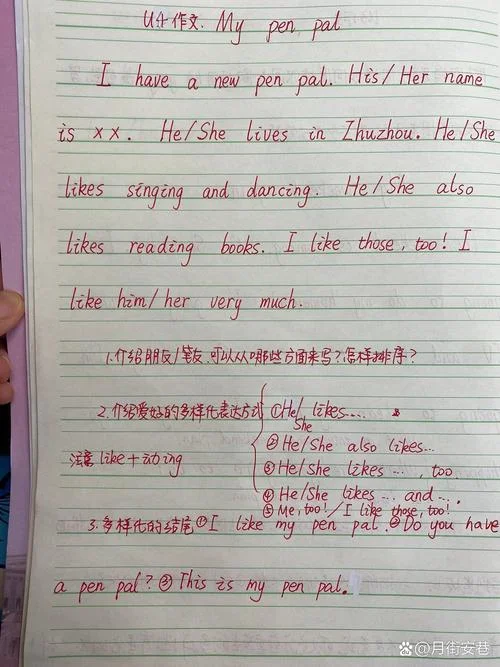 U4 作文. My pen pal
I have a new pen pal. His/Her name
is x x. He/She lives in Zhuzhou. He/She
likes singing and dancing. He/She also
likes reading books. I like those, too! I
like him/her very much.
1.介绍朋友/笔友,可以从哪些方面来写?怎样排序?
2.介绍爱好的多样化表达方式 ①He/She likes....
注意 like+动ing
②He/She also likes...
③He/She likes ..., too
④He/She likes ... and ....
⑤Me, too! / I like those, too!
3.多样化的结尾①I like my pen pal.②Do you have
a pen pal?③This is my pen pal.
百家号/月街安巷